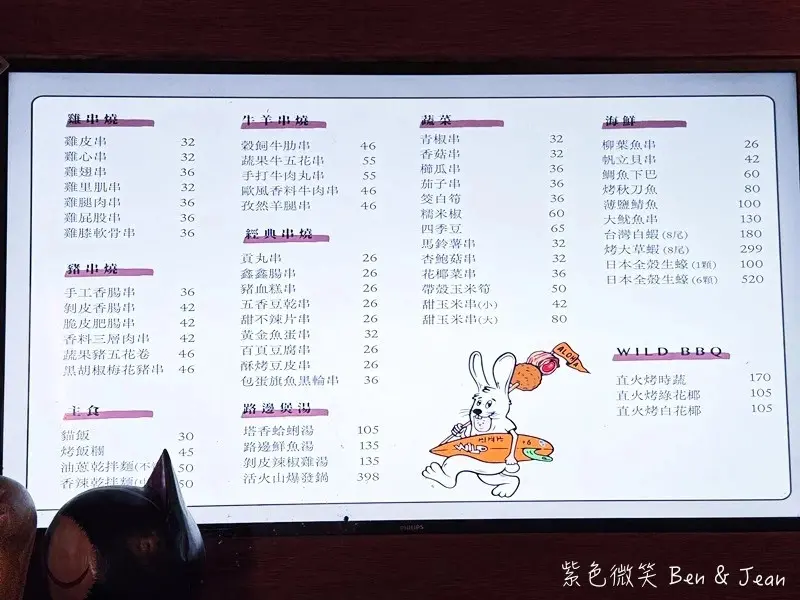 雞串燒
雞皮串 32
雞心串 32
雞翅串 36
雞里肌串 32
雞腿肉串 36
雞屁股串 36
雞膝軟骨串 36
豬串燒
手工香腸串 36
剝皮香腸串 42
脆皮肥腸串 42
香料三層肉串 42
蔬果豬五花卷 46
黑胡椒梅花豬串 46
主食
貓飯 30
烤飯糰 45
油蔥乾拌麵(不 50
香辣乾拌麵( 50
牛羊串燒
穀飼牛肋串 46
蔬果牛五花串 55
手打牛肉丸串 55
歐風香料牛肉串 46
孜然羊腿串 46
經典串燒
貢丸串 26
鑫鑫腸串 26
豬血糕串 26
五香豆乾串 26
甜不辣片串 26
黃金魚蛋串 32
百頁豆腐串 26
酥烤豆皮串 26
包蛋旗魚黑輪串 36
路邊煲湯
塔香蛤蜊湯 105
路邊鮮魚湯 135
剝皮辣椒雞湯 135
活火山爆發鍋 398
蔬菜
青椒串 32
香菇串 32
櫛瓜串 36
茄子串 36
筊白筍 36
糯米椒 60
四季豆 65
馬鈴薯串 32
杏鮑菇串 32
花椰菜串 36
帶殼玉米筍 50
甜玉米串(小) 42
甜玉米串(大) 80
海鮮
柳葉魚串 26
帆立貝串 42
鯛魚下巴 60
烤秋刀魚 80
薄鹽鯖魚 100
大魷魚串 130
台灣白蝦(8尾) 180
烤大草蝦(8尾) 299
日本全殼生蠔(1顆) 100
日本全殼生蠔(6顆) 520
WILD BBQ
直火烤時蔬 170
直火烤綠花椰 105
直火烤白花椰 105
ALOHA
WILD
PHILIPS
紫色微笑 Ben & Jean